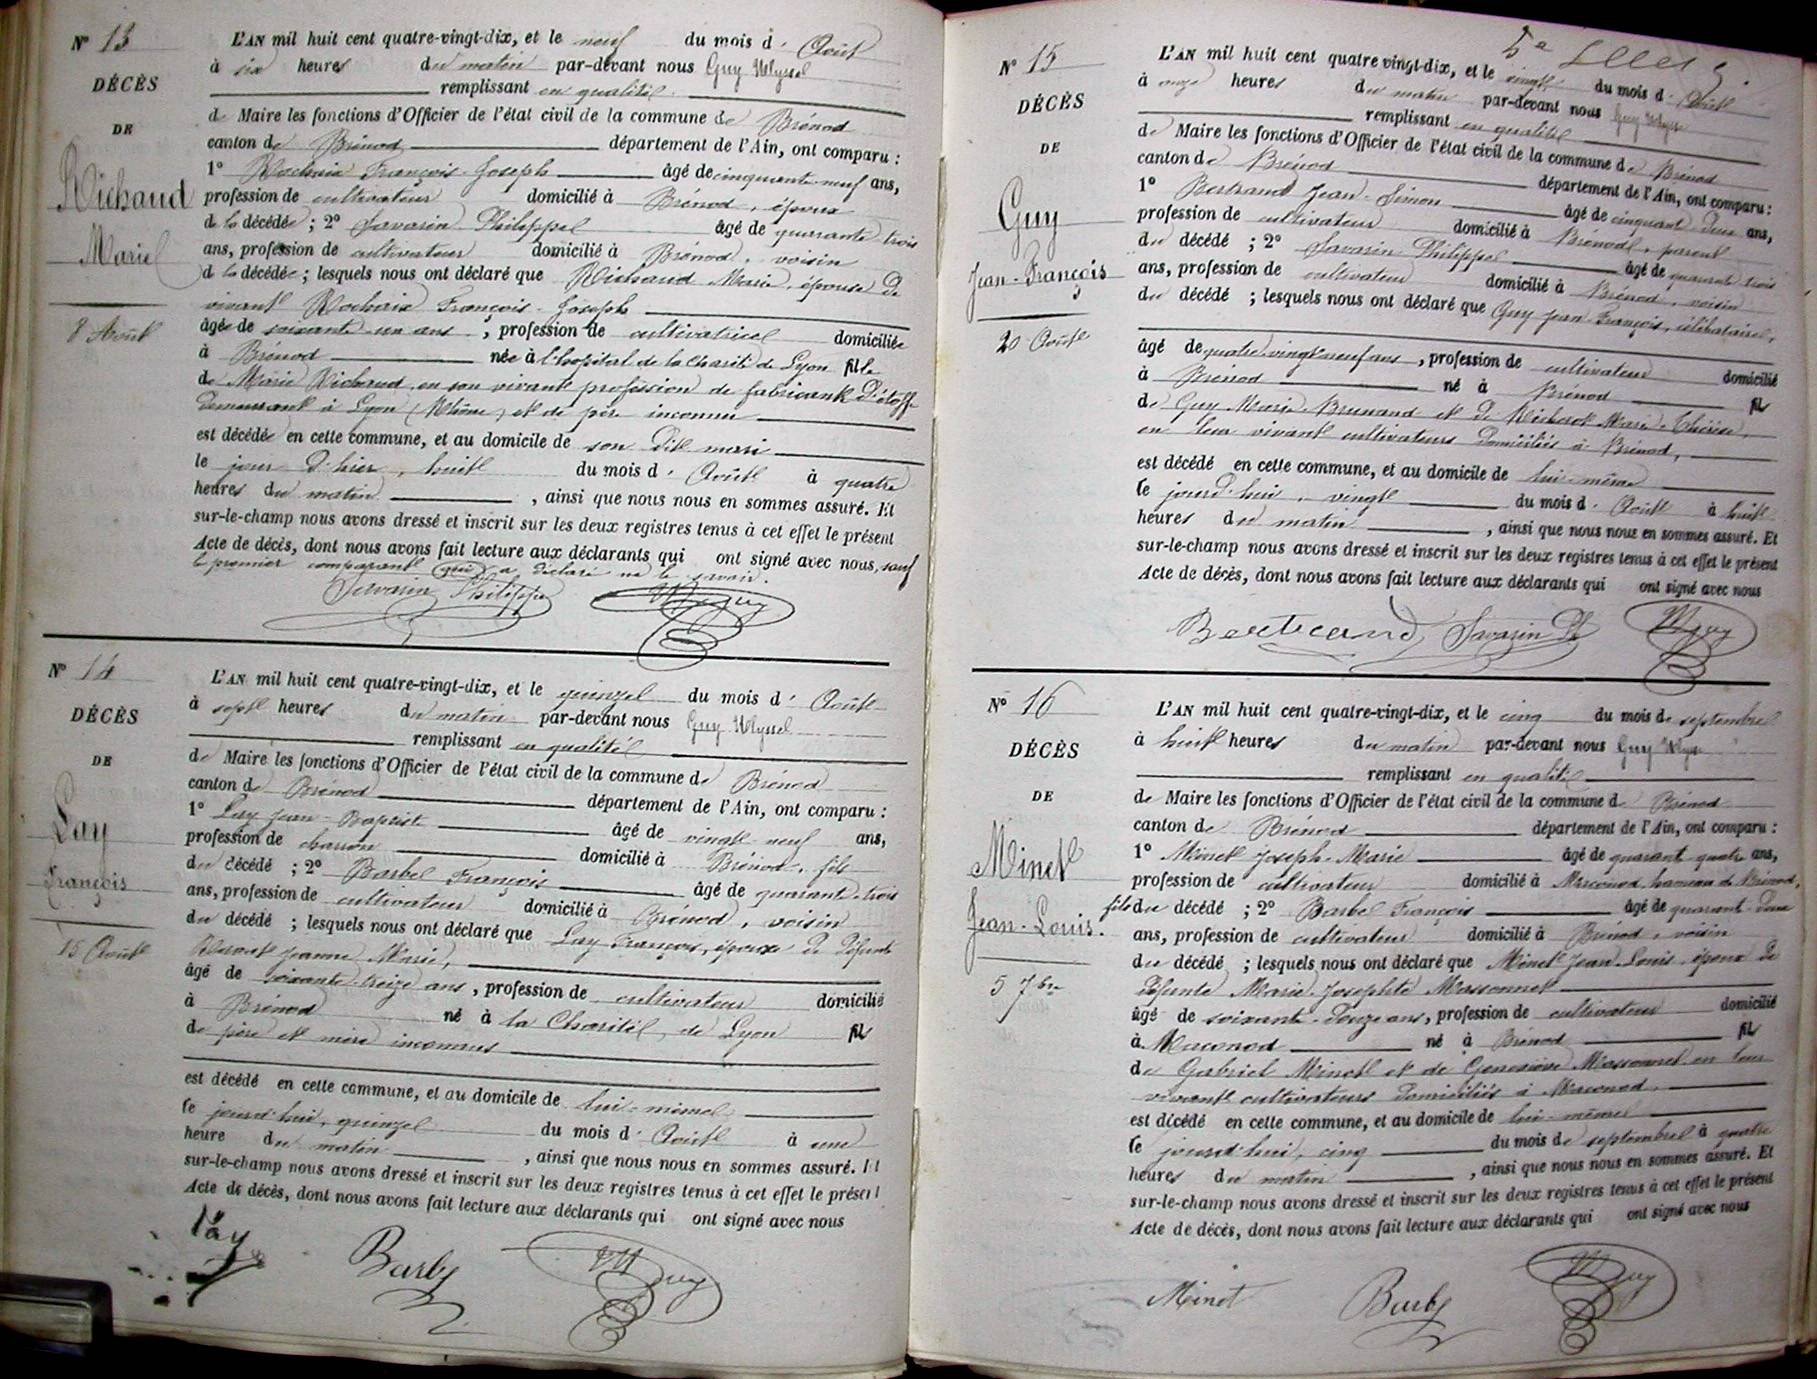 N° 13
DÉCÈS
DE
Richaud
Marie
8 Août
L'AN mil huit cent quatre-vingt-dix, et le neuf du mois d' Août
à six heures du matin par-devant nous Guy Ulysse
remplissant en qualité
de Maire les fonctions d'Officier de l'état civil de la commune de Brénod
canton de Brénod département de l'Ain, ont comparu :
1° Rochaix François-Joseph âgé de cinquante-neuf ans,
profession de cultivateur domicilié à Brénod, époux
de la décédée ; 2° Savarin Philippe âgé de quarante-trois
ans, profession de cultivateur domicilié à Brénod, voisin
de la décédée ; lesquels nous ont déclaré que Richaud Marie, épouse de
vivant Rochaix François-Joseph
âgée de soixante-un ans, profession de cultivatrice domiciliée
à Brénod née à l'hopital de la Charité de Lyon fille
de Marie Richaud en son vivant profession de fabricant d'étoffe
demeurant à Lyon (Rhône) et de père inconnu
est décédée en cette commune, et au domicile de son dit mari
le jour d'hier, huit du mois d' Août à quatre
heures du matin, ainsi que nous nous en sommes assuré. Et
sur-le-champ nous avons dressé et inscrit sur les deux registres tenus à cet effet le présent
Acte de décès, dont nous avons fait lecture aux déclarants qui ont signé avec nous, sauf
le premier comparant qui a déclaré ne le savoir.
Savarin Philippe Uguy
N° 14
DÉCÈS
DE
Lay
François
15 Août
L'AN mil huit cent quatre-vingt-dix, et le quinze du mois d' Août
à sept heures du matin par-devant nous Guy Ulysse
remplissant en qualité
de Maire les fonctions d'Officier de l'état civil de la commune de Brénod
canton de Brénod département de l'Ain, ont comparu :
1° Lay Jean-Baptiste âgé de vingt-neuf ans,
profession de charron domicilié à Brénod, fils
du décédé ; 2° Barbel François âgé de quarante-trois
ans, profession de cultivateur domicilié à Brénod, voisin
du décédé ; lesquels nous ont déclaré que Lay François, époux de défunte
Jeanne Marie,
âgé de soixante-treize ans, profession de cultivateur domicilié
à Brénod né à la Charité, de Lyon fils
de père et mère inconnus
est décédé en cette commune, et au domicile de lui-même
le jourd'hui, quinze du mois d' Août à une
heure du matin, ainsi que nous nous en sommes assuré. Et
sur-le-champ nous avons dressé et inscrit sur les deux registres tenus à cet effet le présent
Acte de décès, dont nous avons fait lecture aux déclarants qui ont signé avec nous
lay Barby Uguy
5e
N° 15
DÉCÈS
DE
Guy
Jean-François
20 Août
L'AN mil huit cent quatre vingt-dix, et le vingt du mois d' Août
à onze heures du matin par-devant nous Guy Ulysse
remplissant en qualité
de Maire les fonctions d'Officier de l'état civil de la commune de Brénod
canton de Brénod département de l'Ain, ont comparu :
1° Bertrand Jean-Simon âgé de cinquante deux ans,
profession de cultivateur domicilié à Brénod, parent
du décédé ; 2° Savarin Philippe âgé de quarante trois
ans, profession de cultivateur domicilié à Brénod, voisin
du décédé ; lesquels nous ont déclaré que Guy Jean-François, célibataire,
âgé de quatre-vingt neuf ans, profession de cultivateur domicilié
à Brénod né à Brénod fils
de Guy Marie-Brunand et de Marie-Thérèse,
en leur vivant cultivateurs domiciliés à Brénod,
est décédé en cette commune, et au domicile de lui-même
le jourd'hui, vingt du mois d' Août à huit
heures du matin, ainsi que nous nous en sommes assuré. Et
sur-le-champ nous avons dressé et inscrit sur les deux registres tenus à cet effet le présent
Acte de décès, dont nous avons fait lecture aux déclarants qui ont signé avec nous
Bertrand Savarin Ph Uguy
N° 16
DÉCÈS
DE
Minet
Jean-Louis.
5 7bre
L'AN mil huit cent quatre-vingt-dix, et le cinq du mois de septembre
à huit heures du matin par-devant nous Guy Ulysse
remplissant en qualité
de Maire les fonctions d'Officier de l'état civil de la commune de Brénod
canton de Brénod département de l'Ain, ont comparu :
1° Minet Joseph-Marie âgé de quarant quatre ans,
profession de cultivateur domicilié à Macconod, hameau de Brénod,
fils du décédé ; 2° Barbel François âgé de quarant-deux
ans, profession de cultivateur domicilié à Brénod, voisin
du décédé ; lesquels nous ont déclaré que Minet Jean-Louis, époux de
défunte Marie-Josephte Massonnet
âgé de soixante-douze ans, profession de cultivateur domicilié
à Maconod né à Brénod fils
de Gabriel Minet et de Geneviève Massonnet en leur
vivant cultivateurs domiciliés à Maconod,
est décédé en cette commune, et au domicile de lui-même
le jourd'hui, cinq du mois de septembre à quatre
heures du matin, ainsi que nous nous en sommes assuré. Et
sur-le-champ nous avons dressé et inscrit sur les deux registres tenus à cet effet le présent
Acte de décès, dont nous avons fait lecture aux déclarants qui ont signé avec nous
Minet Barby Uguy